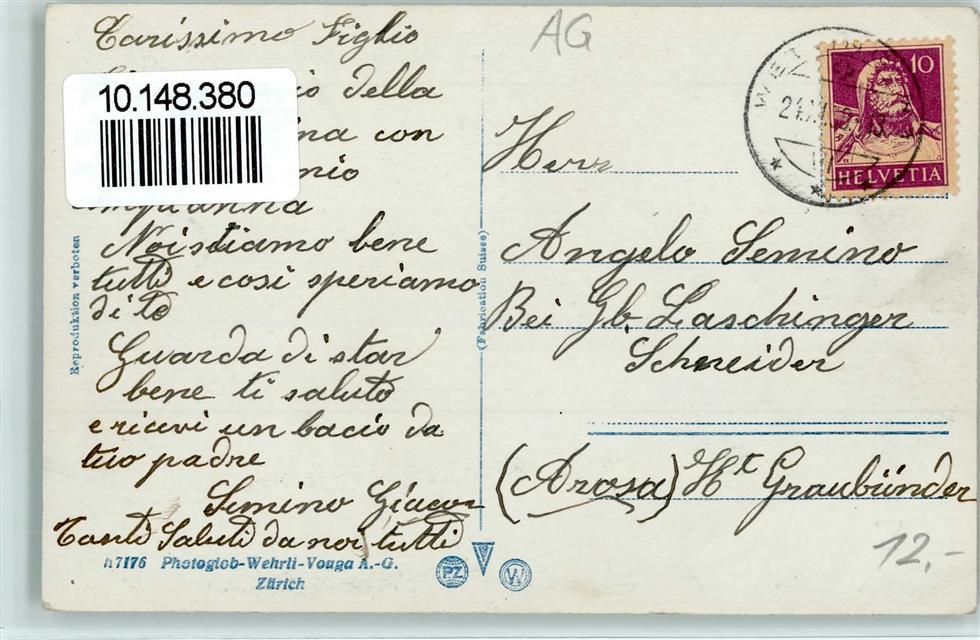 Carissimo Figlio
della
con
Noi stiamo bene
tutti e cosi speriamo
di te
Guarda di star
bene ti saluto
e ricevi un bacio da
tuo padre
Semino
Tanti Saluti da noi tutti
10.148.380
Reproduktion verboten
(Fabrication Suisse)
h7176 Photoglob-Wehrli-Vouga A.-G.
Zürich
PZ
W
AG
10
HELVETIA
Herr
Angelo Semino
Bei Gb. Laschinger
Schneider
(Arosa) Kt Graubünden
12,-